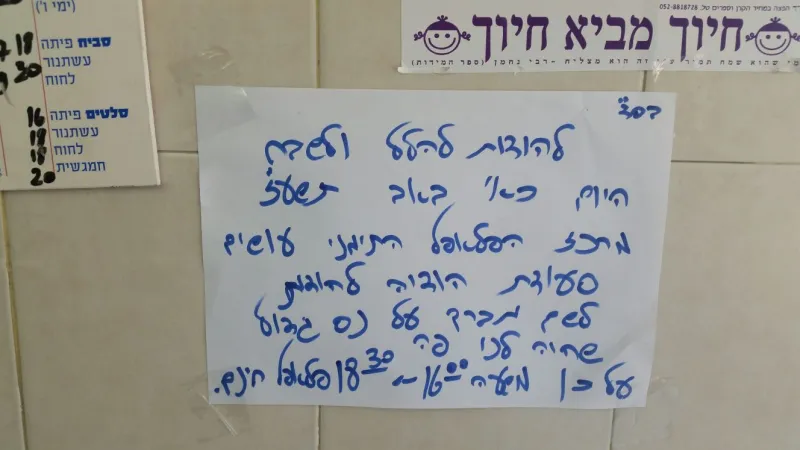 (ימי ו')
סביח פיתה 18
עשתנור 20
לחוח
סלטים פיתה 16
עשתנור 18
לחוח 18
חמגשית 20
052-8818728
חיוך מביא חיוך
בסד"
להודות להלל ולשבח
היום כא' באב תשעז
מרכז הפלאפל התימני עושים
סעודת הודיה להודות
לשם מברך על נס גדול
שהיה לנו פה
על כן משעה 16:00 - 18:30 פלאפל חינם.